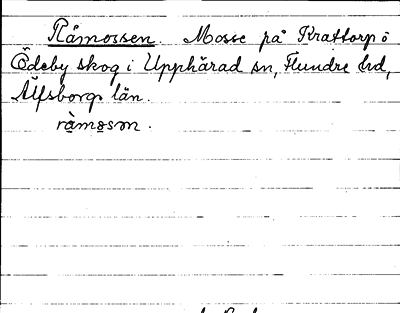 Råmossen. Mosse på Krattorp o
Ödeby skog i Upphärad sn, Flundre hd,
Älfsborgs län.
ràmosøn.